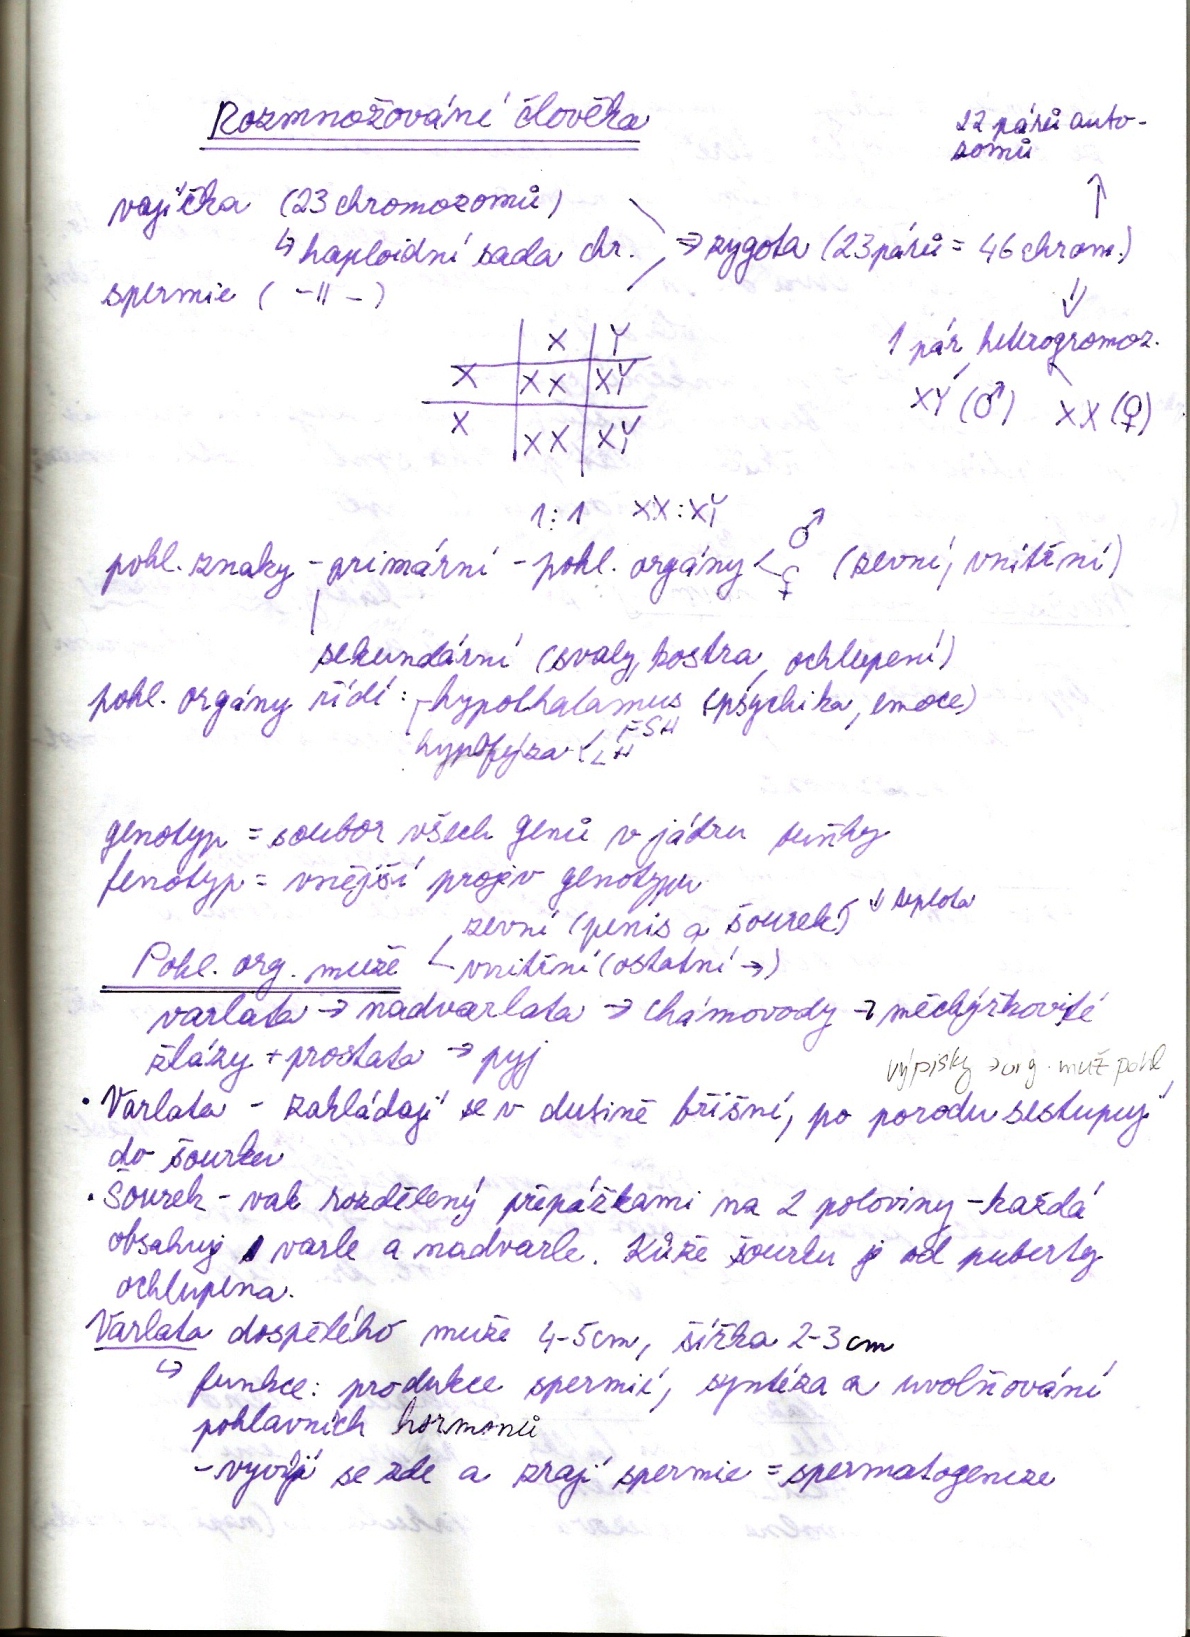 Rozmnožování člověka
22 párů auto-
zomů
↑
vajíčka (23 chromozomů)
↳ haploidní sada chr. ⇒ zygota (23 párů = 46 chrom.)
spermie ( -||- )
⇓
1 pár heterogromoz.
XY (♂) XX (♀)
X Y
X XX XY
X XX XY
1:1 XX:XY
pohl. znaky - primární - pohl. orgány < ♂ ♀ (zevní, vnitřní)
sekundární (svaly, kostra, ochlupení)
pohl. orgány řídí: - hypothalamus (psychika, emoce)
hypofýza < FSH
LH
genotyp = soubor všech genů v jádru buňky
fenotyp = vnější projev genotypu
zevní (penis a šourek) ↓ teplota
Pohl. org. muže < vnitřní (ostatní →)
varlata → nadvarlata → chámovody → měchýřkovité
žlázy + prostata → pyj
výpisky → org. muž pohl
• Varlata - zakládají se v dutině břišní, po porodu sestupují
do šourku
• Šourek - vak rozdělený přepážkami na 2 poloviny - každá
obsahuje 1 varle a nadvarle. Kůže šourku je od puberty
ochlupena.
Varlata dospělého muže 4-5cm, šířka 2-3 cm
↳ funkce: produkce spermií, syntéza a uvolňování
pohlavních hormonů
- vyvíjí se zde a zrají spermie = spermatogeneze